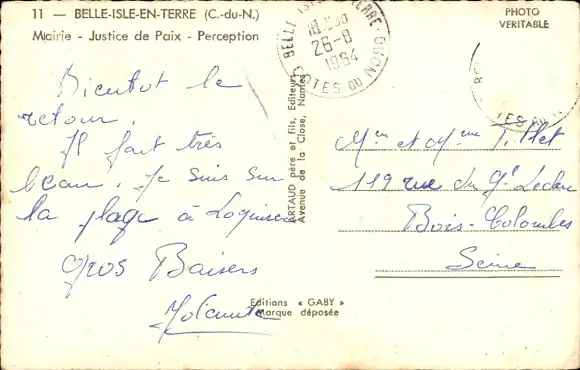 11 - BELLE-ISLE-EN-TERRE (C.-du-N.)
Mairie - Justice de Paix - Perception
PHOTO
VERITABLE
BELLE ISLE TERRE
26-8
1964
COTES DU NORD
Bientot le
retour.
Il fait très
beau. Je suis sur
la plage à
gros Baisers
Yolande
ARTAUD père et fils, Editeurs
Avenue de la Close, Nantes
Editions « GABY »
Marque déposée
Mr et Mme
119 rue du Gl Leclerc
Bois-Colombes
Seine